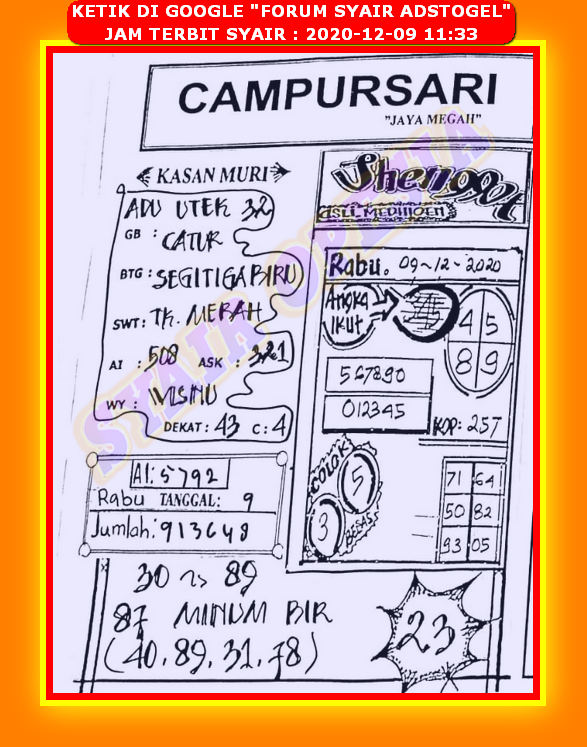 KETIK DI GOOGLE "FORUM SYAIR ADSTOGEL"
JAM TERBIT SYAIR : 2020-12-09 11:33
CAMPURSARI
"JAYA MEGAH"
KASAN MURI
ADU UTEK 32
GB : CATUR
BTG : SEGITIGA BIRU
SWT : TK. MERAH
AI : 508 ASK : 321
WY : WISNU
DEKAT : 43 C : 4
AI : 5792
Rabu TANGGAL : 9
Jumlah : 913648
ASLI
Rabu. 09-12-2020
Angka
Ikut
345
4 5
8 9
567890
012345
KOP : 257
COLOK
5
3
BEBAS
71 64
50 82
93 05
30 ~> 89
87 MINUM BIR
(40, 89, 31, 78)
23
SYAIR OPELIA